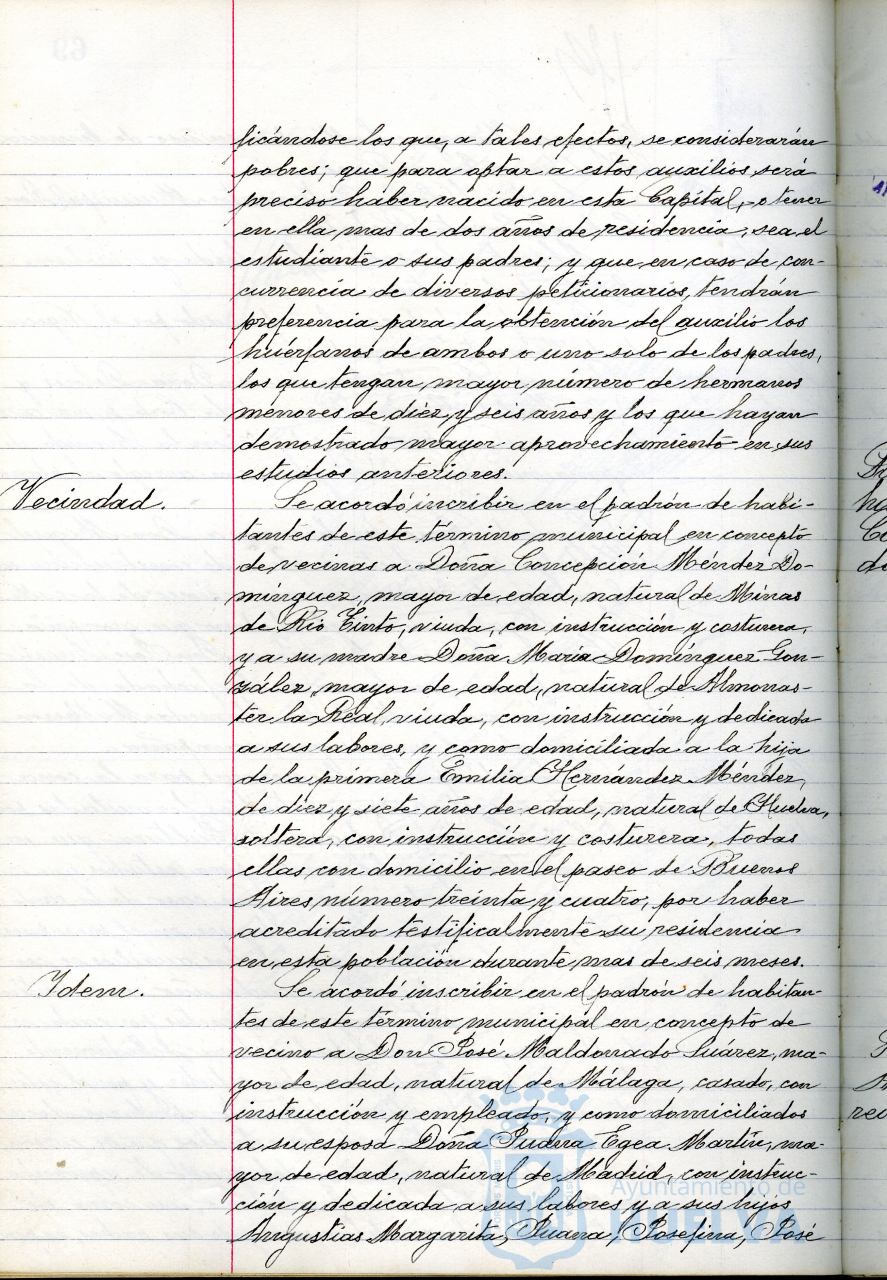 ficándose los que, a tales efectos, se considerarán
pobres; que para optar a estos auxilios será
preciso haber nacido en esta Capital, o tener
en ella mas de dos años de residencia, sea el
estudiante o sus padres; y que en caso de con-
currencia de diversos peticionarios, tendrán
preferencia para la obtención del auxilio los
huérfanos de ambos o uno solo de los padres,
los que tengan mayor número de hermanos
menores de diez y seis años y los que hayan
demostrado mayor aprovechamiento en sus
estudios anteriores.
Vecindad.
Se acordó incribir en el padrón de habi-
tantes de este término municipal en concepto
de vecinas a Doña Concepción Méndez Do-
mínguez, mayor de edad, natural de Minas
de Rio Tinto, viuda, con instrucción y costurera,
y a su madre Doña María Domínguez Gon-
zález, mayor de edad, natural de Almonas-
ter la Real, viuda, con instrucción y dedicada
a sus labores, y como domiciliada a la hija
de la primera Emilia Hernández Méndez,
de diez y siete años de edad, natural de Huelva,
soltera, con instrucción y costurera, todas
ellas con domicilio en el paseo de Buenos
Aires número treinta y cuatro, por haber
acreditado testificalmente su residencia
en esta población durante mas de seis meses.
Idem.
Se acordó inscribir en el padrón de habitan-
tes de este término municipal en concepto de
vecino a Don José Maldonado Suárez, ma-
yor de edad, natural de Málaga, casado, con
instrucción y empleado, y como domiciliados
a su esposa Doña Juana Egea Martín, ma-
yor de edad, natural de Madrid, con instruc-
ción y dedicada a sus labores y a sus hijos
Angustias Margarita, Juana, Josefina, José
Ayuntamiento de
HUELVA